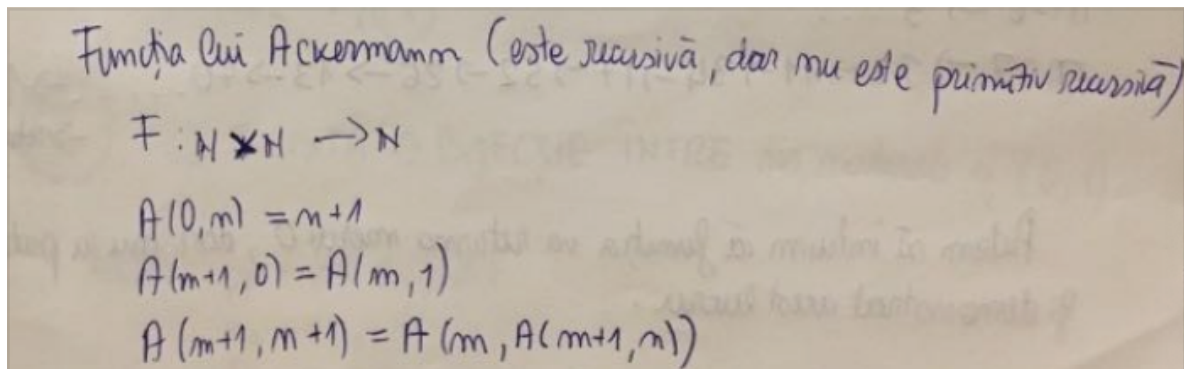 Funcția lui Ackermann (este recursivă, dar nu este primitiv recursivă)
F: N×N → N
A(0,n) = n+1
A(m+1, 0) = A(m, 1)
A(m+1, n+1) = A(m, A(m+1, n))